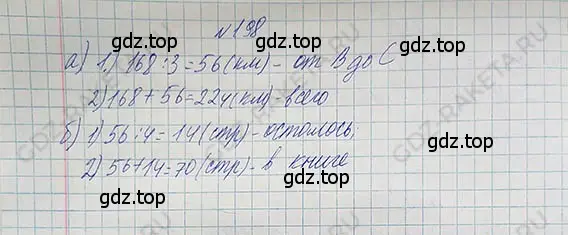 №198
gdz.top gdz.top
а) 1) 168:3=56(км)- от В до С
gdz.top gdz.top
2) 168+56=224(км)-всего
б) 1) 56:4=14(стр)-осталось;
gdz.top gdz.top
2) 56+14=70(стр)-в книге
gdz.top gdz.top
GDZ-RAKETA.RU